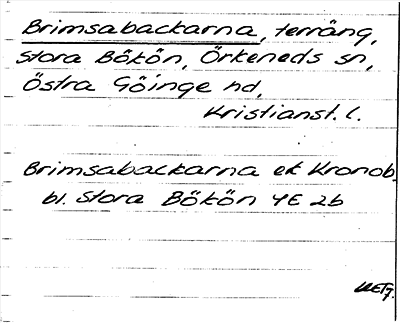 Brimsabackarna, terräng,
Stora Bökön, Örkeneds sn,
Östra Göinge hd,
Kristianst. l.
Brimsabackarna ek Kronob.
bl. Stora Bökön 4E 2b